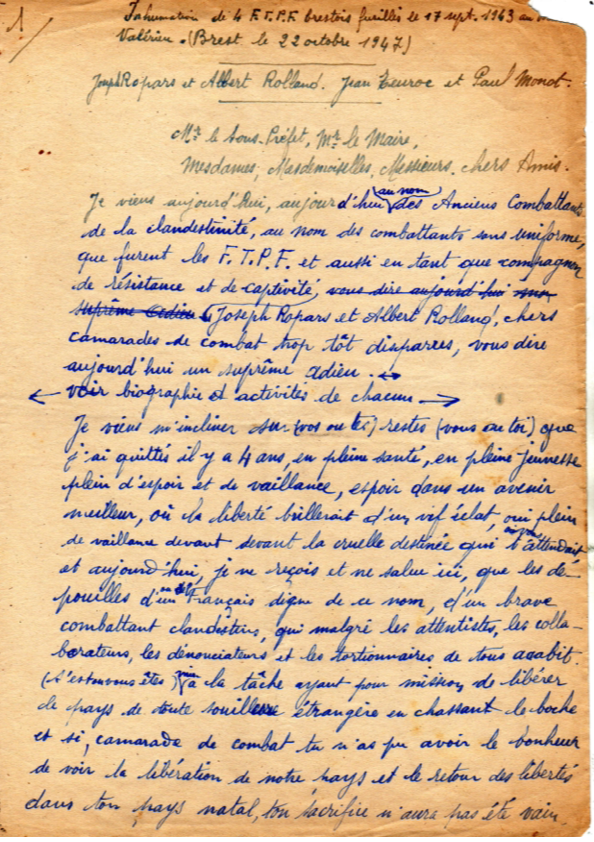 1/
Inhumation de 4 F.T.P.F. brestois fusillés le 17 sept. 1943 au
Valérien. (Brest le 22 octobre 1947)
Joseph Ropars et Albert Rolland. Jean et Paul Monot.
Mr le Sous-Préfet, Mr le Maire,
Mesdames, Mesdemoiselles, Messieurs, chers Amis.
Je viens aujourd'hui, aujourd'hui au nom des Anciens Combattants
de la clandestinité, au nom des combattants sans uniforme,
que furent les F.T.P.F. et aussi en tant que compagnon
de résistance et de captivité, vous dire aujourd'hui mon
suprême adieu Joseph Ropars et Albert Rolland, chers
camarades de combat trop tôt disparus, vous dire
aujourd'hui un suprême adieu.
voir biographie et activités de chacun
Je viens m'incliner sur (vos ou tes) restes (vous ou toi) que
j'ai quittés il y a 4 ans, en pleine santé, en pleine jeunesse
plein d'espoir et de vaillance, espoir dans un avenir
meilleur, où la liberté brillerait d'un vif éclat, oui plein
de vaillance devant devant la cruelle destinée qui t'attendait
et aujourd'hui, je ne reçois et ne salue ici, que les dé-
pouilles d'un Français digne de ce nom, d'un brave
combattant clandestin, qui malgré les attentistes, les colla-
borateurs, les dénonciateurs et les tortionnaires de tous acabit.
(t'est ou vous êtes) mis à la tâche ayant pour mission de libérer
le pays de toute souillure étrangère en chassant le boche
et si, camarade de combat tu n'as pu avoir le bonheur
de voir la libération de notre pays et le retour des libertés
dans ton pays natal, ton sacrifice n'aura pas été vain.